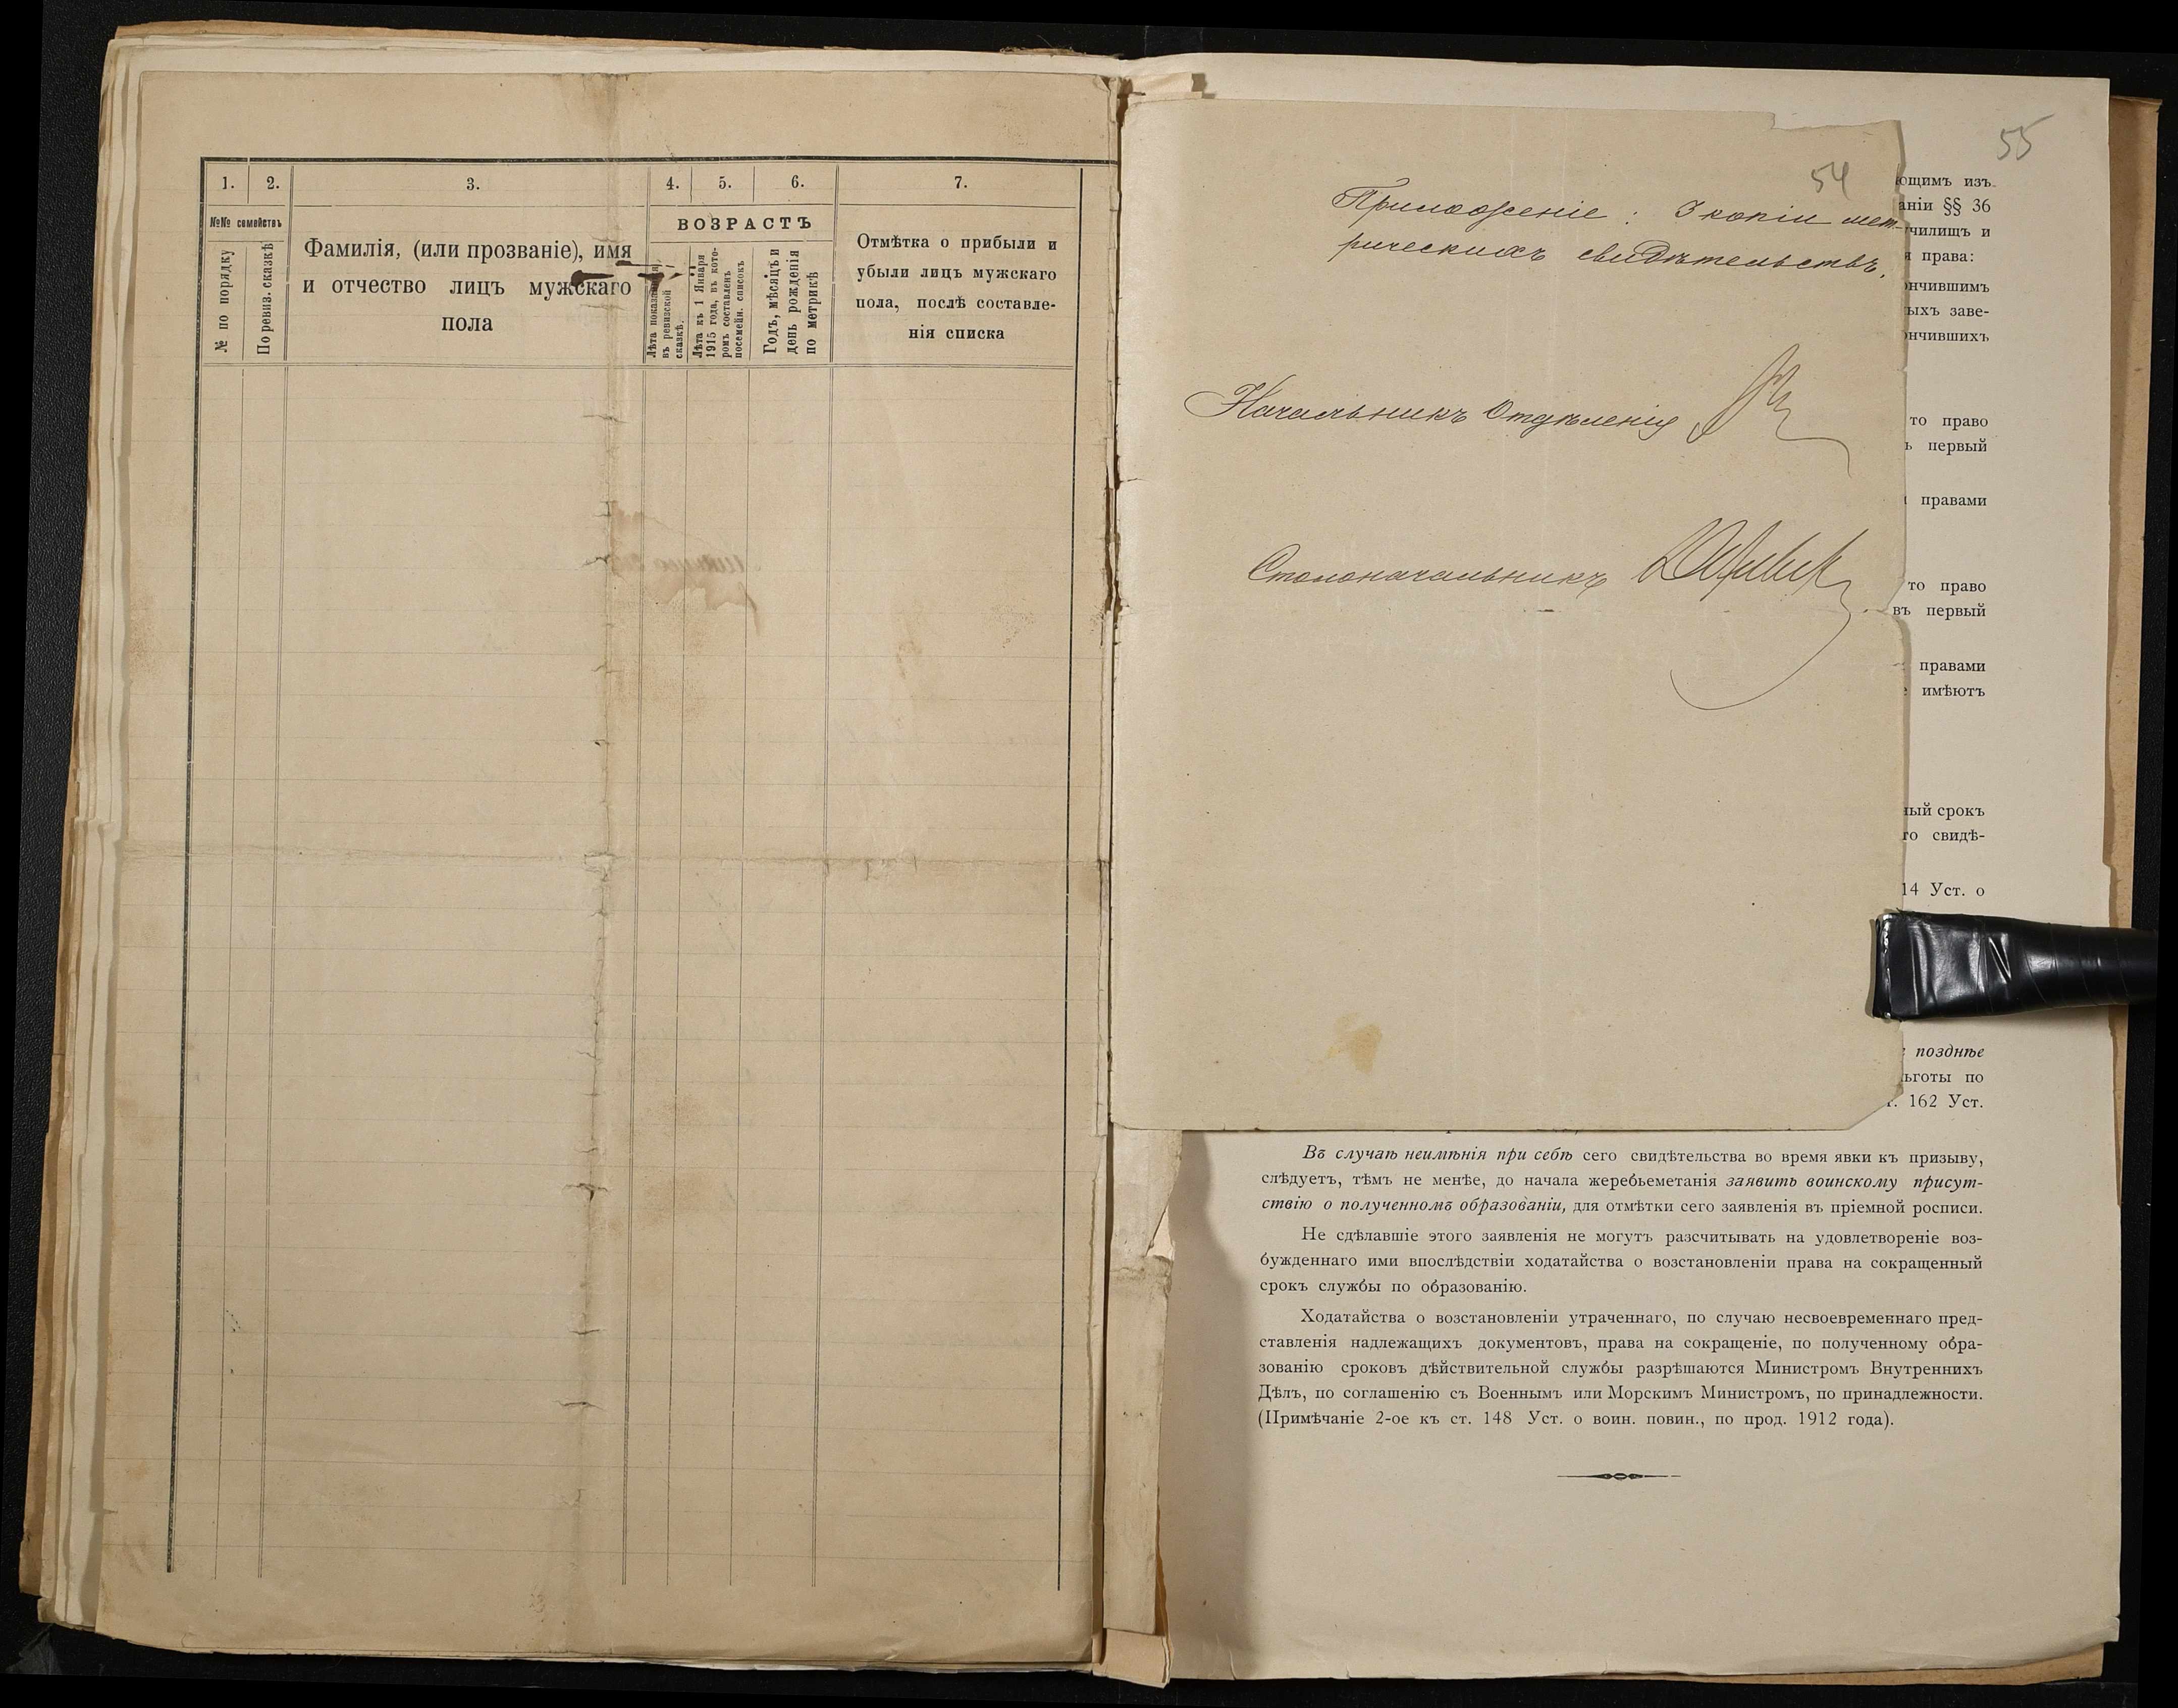 1. 2. 3. 4. 5. 6. 7.
№№ семействъ
№ по порядку
По ревиз. сказкѣ
Фамилія, (или прозваніе), имя
и отчество лицъ мужскаго
пола
ВОЗРАСТЪ
Лѣта показанныя
въ ревизской
сказкѣ.
Лѣта къ 1 Января
1915 года, въ кото-
ромъ составленъ
посемейн. списокъ
Годъ, мѣсяцъ и
день рожденія
по метрикѣ
Отмѣтка о прибыли и
убыли лицъ мужскаго
пола, послѣ составле-
нія списка
54
Приложеніе: 3 копіи мет-
рическихъ свидѣтельствъ.
Начальникъ Отдѣленія
Столоначальникъ
55
ющимъ изъ
аніи §§ 36
училищъ и
права:
ончившимъ
ыхъ заве-
ончившихъ
то право
ъ первый
правами
то право
въ первый
правами
имѣютъ
ный срокъ
го свидѣ-
14 Уст. о
позднѣе
ьготы по
. 162 Уст.
Въ случаѣ неимѣнія при себѣ сего свидѣтельства во время явки къ призыву,
слѣдуетъ, тѣмъ не менѣе, до начала жеребьеметанія заявить воинскому присут-
ствію о полученномъ образованіи, для отмѣтки сего заявленія въ пріемной росписи.
Не сдѣлавшіе этого заявленія не могутъ разсчитывать на удовлетвореніе воз-
бужденнаго ими впослѣдствіи ходатайства о возстановленіи права на сокращенный
срокъ службы по образованію.
Ходатайства о возстановленіи утраченнаго, по случаю несвоевременнаго пред-
ставленія надлежащихъ документовъ, права на сокращеніе, по полученному обра-
зованію сроковъ дѣйствительной службы разрѣшаются Министромъ Внутреннихъ
Дѣлъ, по соглашенію съ Военнымъ или Морскимъ Министромъ, по принадлежности.
(Примѣчаніе 2-ое къ ст. 148 Уст. о воин. повин., по прод. 1912 года).